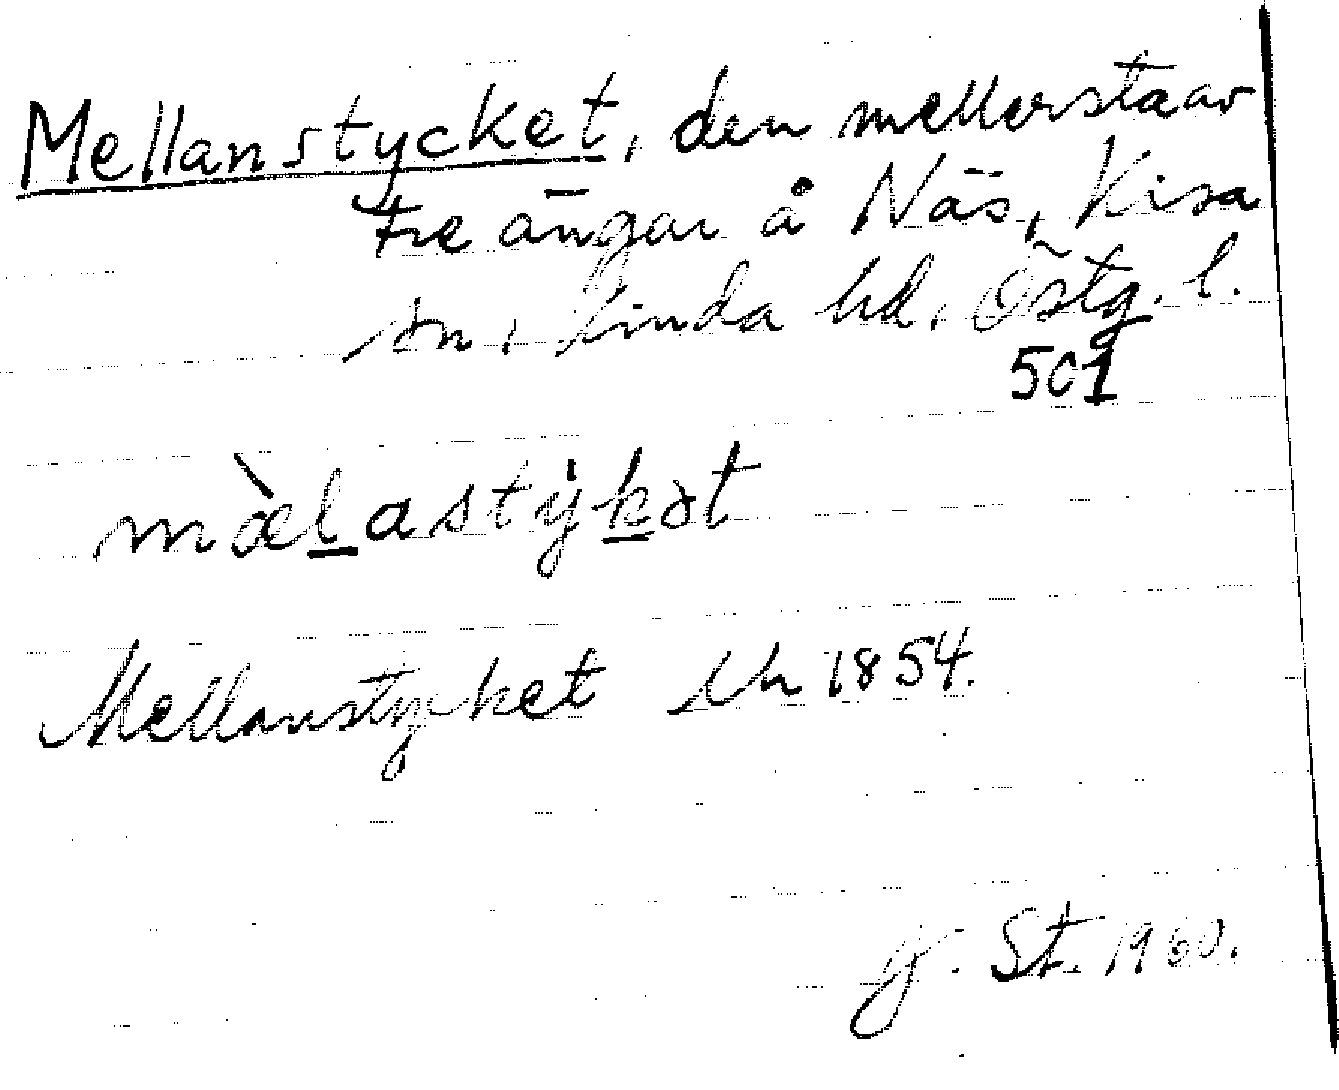 Mellanstycket, den mellersta av
tre ängar å Näs, Kisa
sn, Kinda hd, Östg. l.
501
mæ̀l̲astẏk̲ət
Mellanstycket Uh 1854.
G. St. 1960.